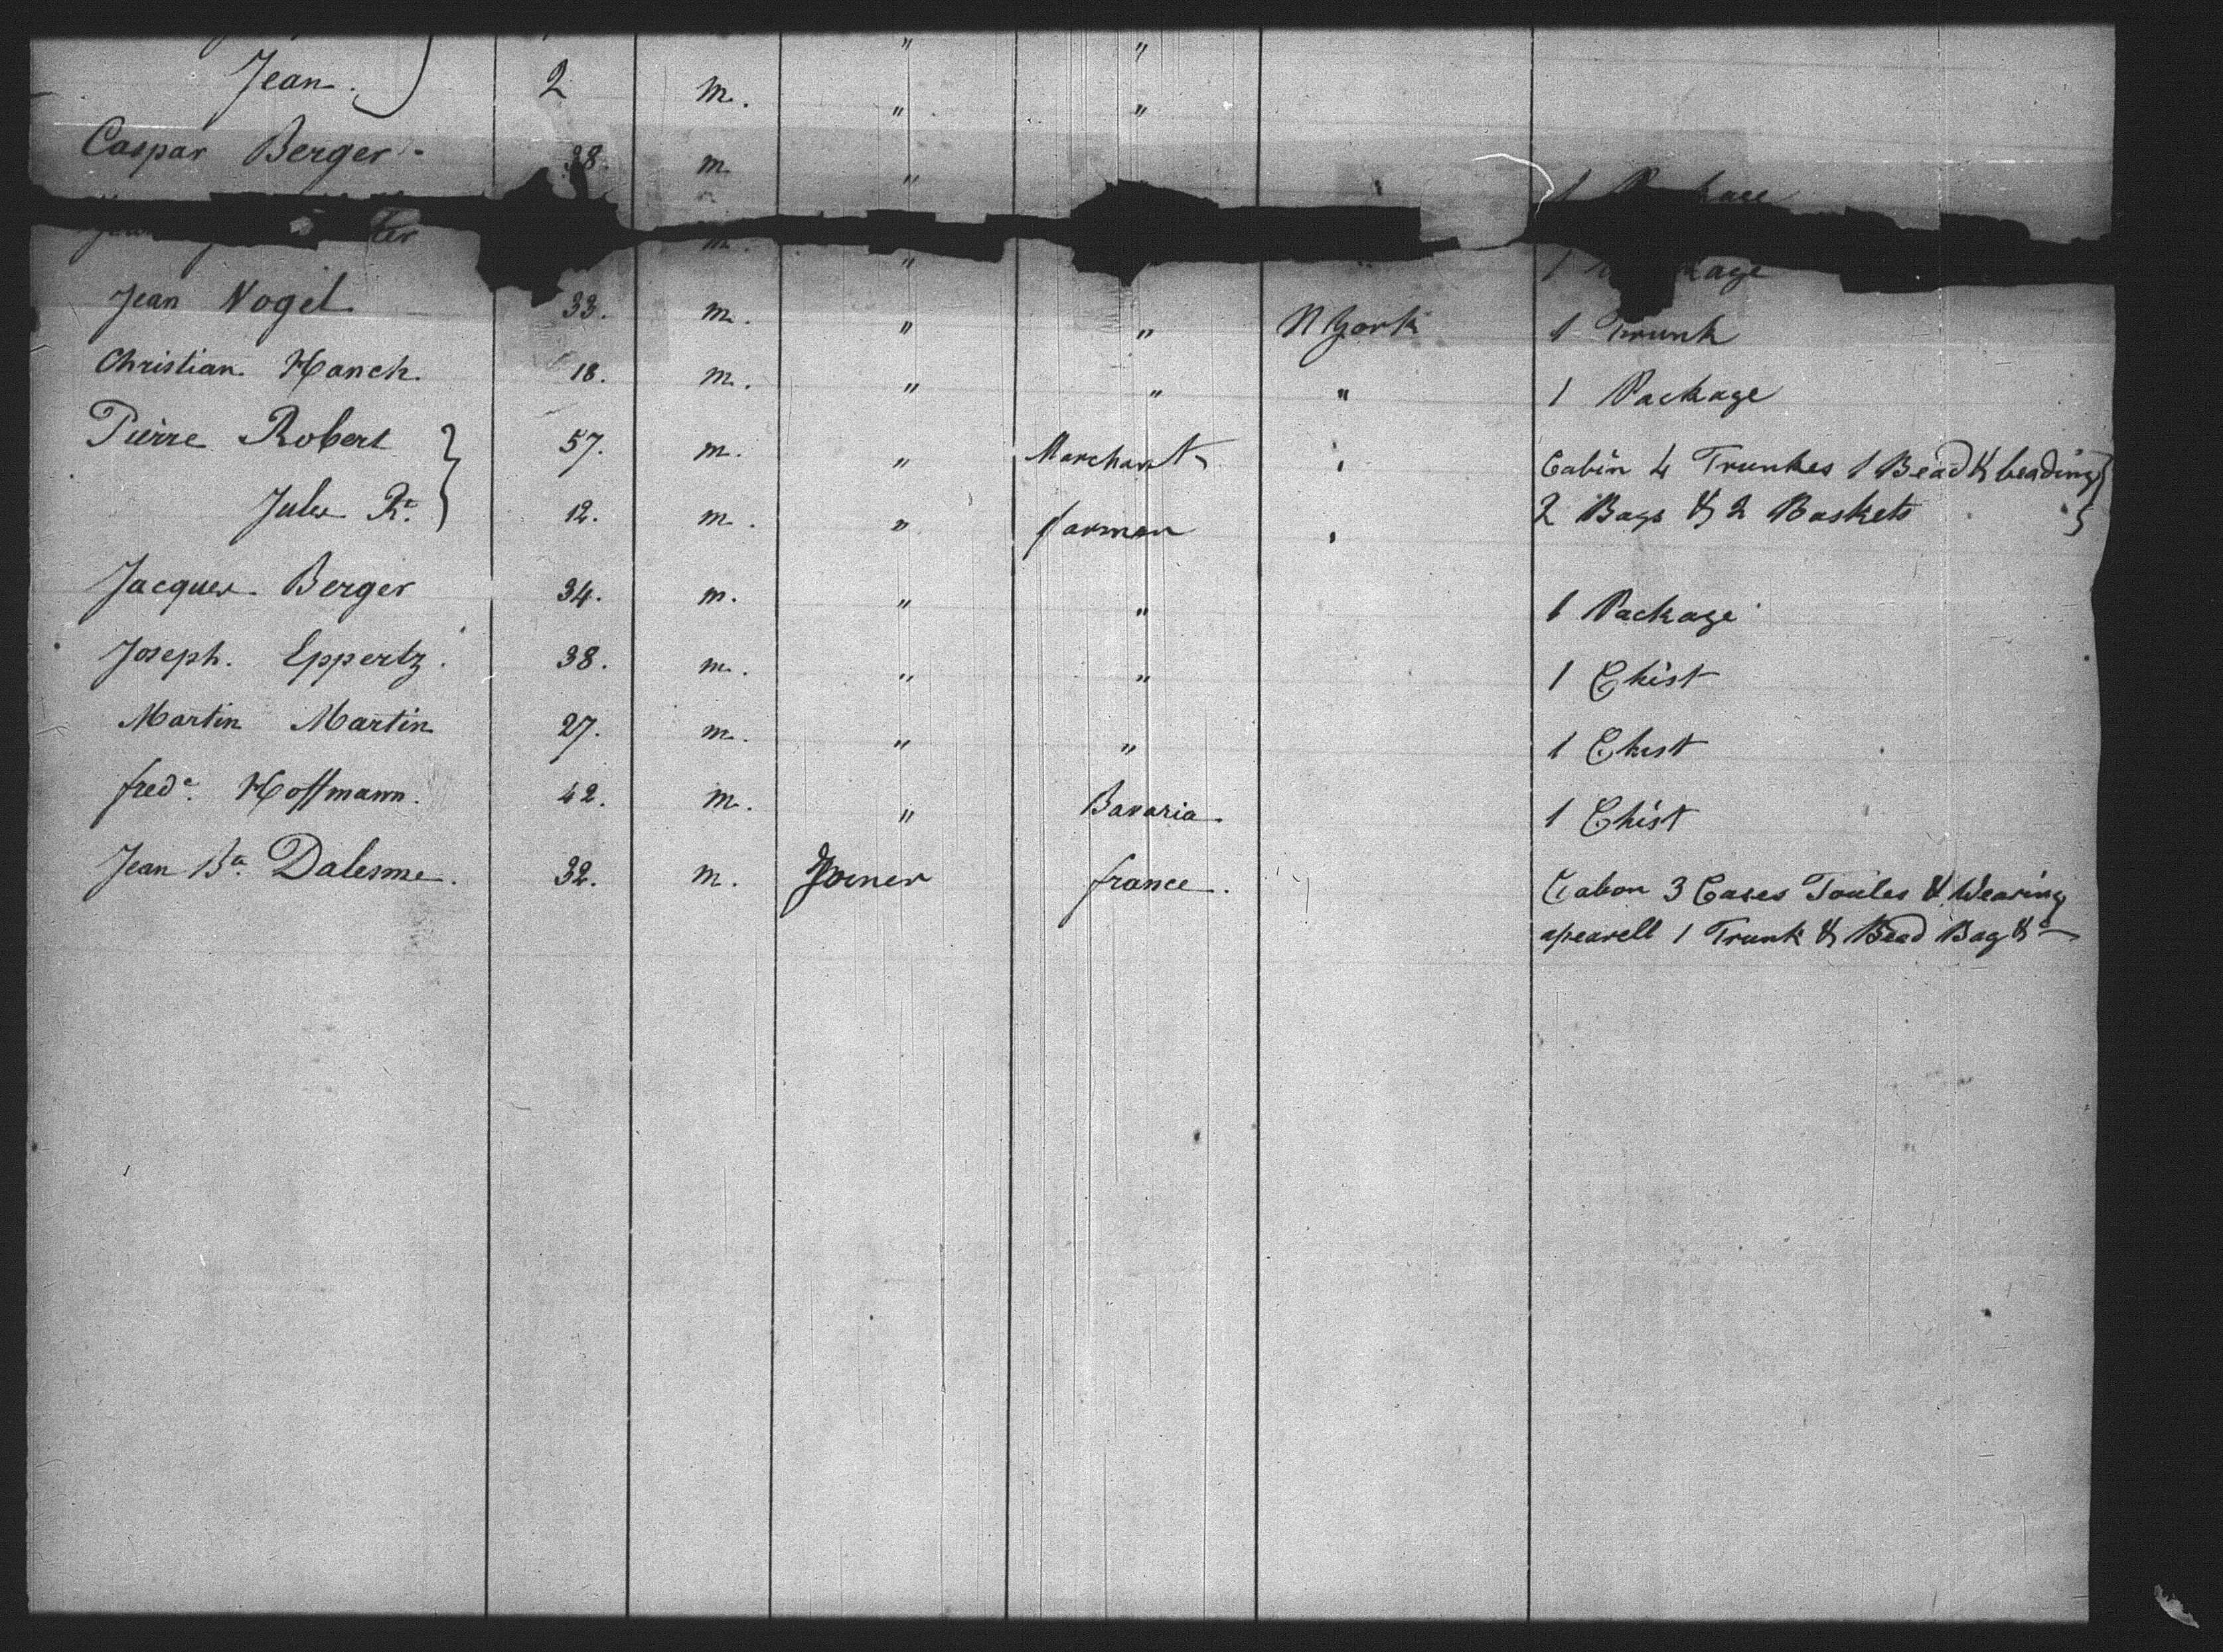 " "
Jean. } 2 m. " "
Caspar Berger. 38. m. " 1
m. " 1
Jean Vogel 33. m. " " N York 1 Trunk
Christian Hanch. 18. m. " " " 1 Package
Pierre Robert } 57. m. " Marchant " Cabin 4 Trunkes 1 Bead & beading }
Jules Rt. } 12. m. " farmer " 2 Bags & 2 Baskets }
Jacques Berger 34. m. " " 1 Package
Joseph. Eppertz. 38. m. " " 1 Chist
Martin Martin 27. m. " " 1 Chist
fredc. Hoffmann. 42. m. " Bavaria. 1 Chist
Jean Bta. Dalesme. 32. m. Joiner france. Cabon 3 Cases Toules & Wearing
apearell 1 Trunk & Bead Bag &c